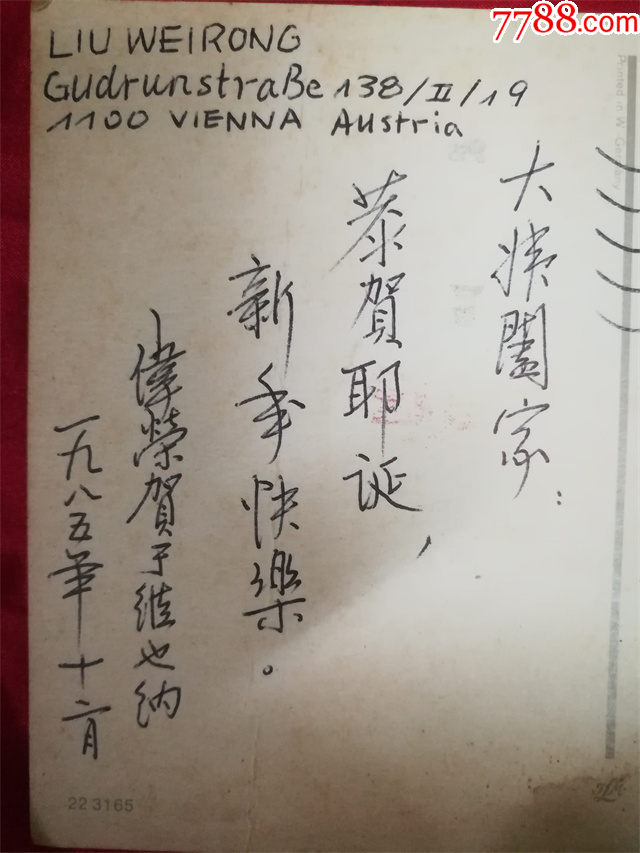 7788.com
LIU WEIRONG
Gudrunstraße 138/II/19
1100 VIENNA Austria
Printed in W. Germany
大姨闔家：
恭賀耶誕，
新年快樂。
偉榮賀于維也納
一九八五年十二月
22 3165